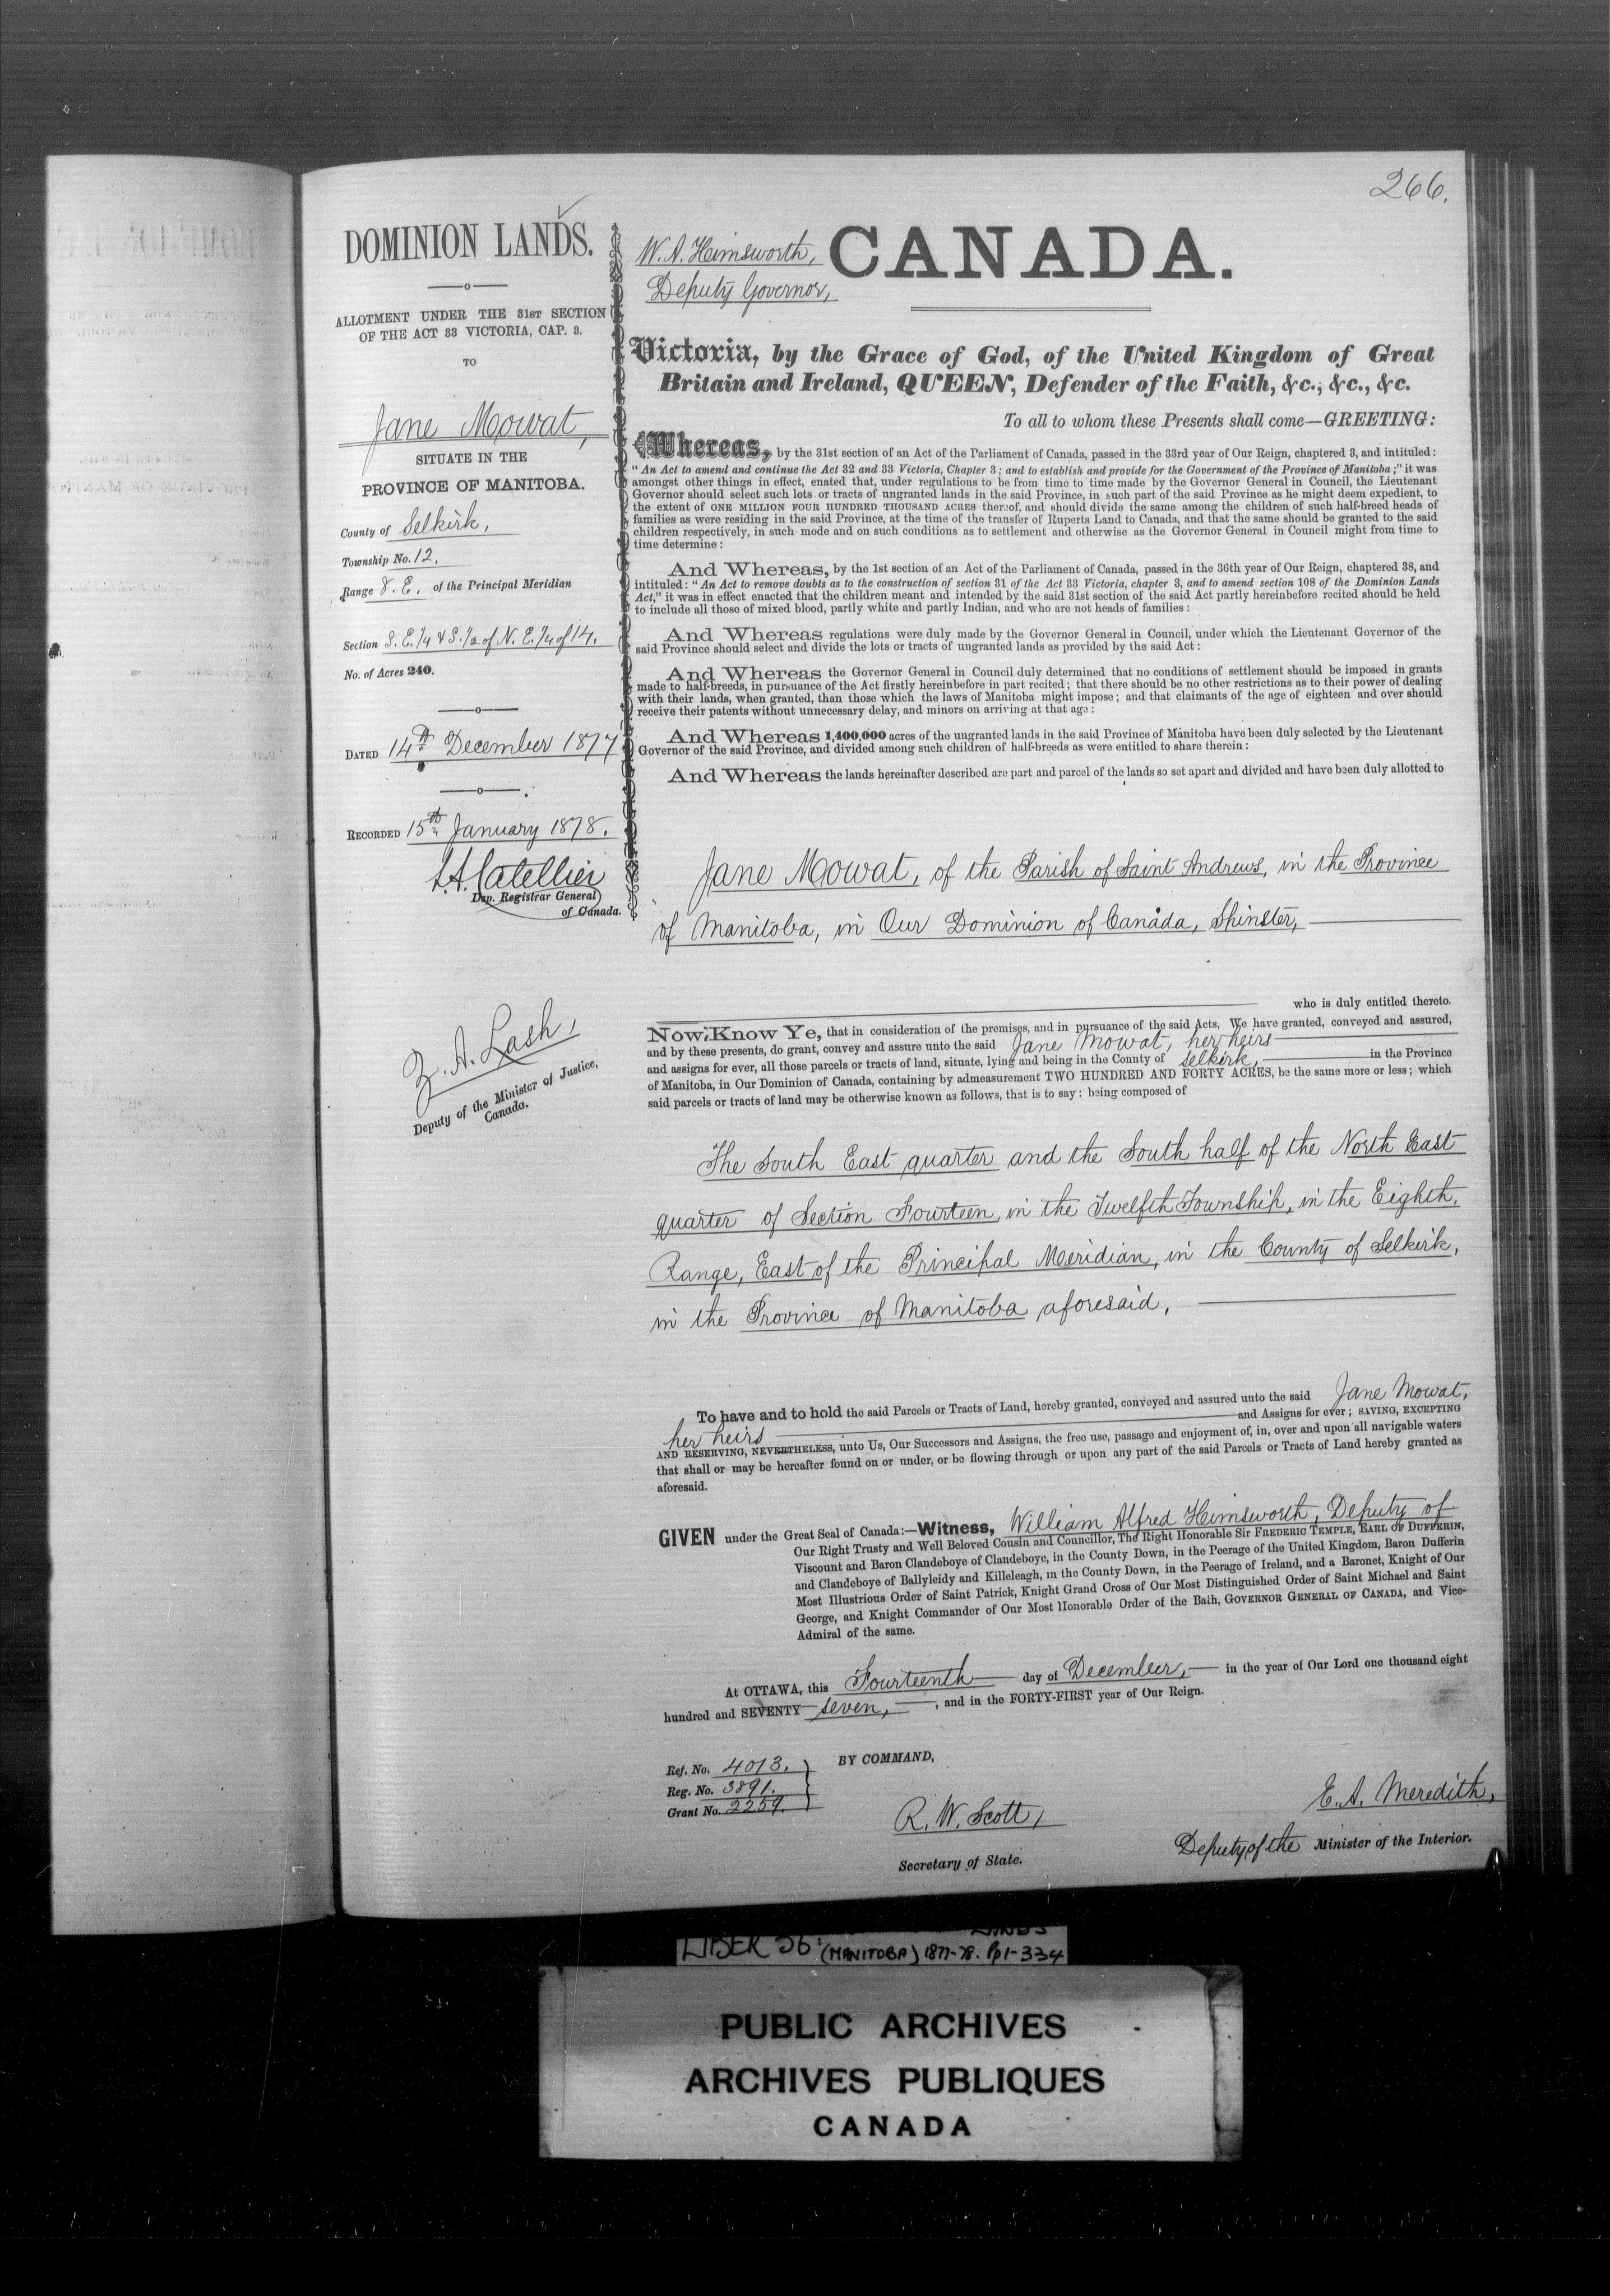 266.
DOMINION LANDS.
ALLOTMENT UNDER THE 31ST SECTION
OF THE ACT 33 VICTORIA, CAP. 3.
TO
Jane Mowat,
SITUATE IN THE
PROVINCE OF MANITOBA.
County of Selkirk,
Township No. 12,
Range 8. E. of the Principal Meridian
Section S. E. 1/4 & S. 1/2 of N. E. 1/4 of 14.
No. of Acres 240.
DATED 14th December 1877
RECORDED 15th January 1878.
L.A. Catellier
Dep. Registrar General
of Canada.
Z. A. Lash,
Deputy of the Minister of Justice,
Canada.
W. A. Himsworth,
Deputy Governor,
CANADA.
Victoria, by the Grace of God, of the United Kingdom of Great
Britain and Ireland, QUEEN, Defender of the Faith, &c., &c., &c.
To all to whom these Presents shall come—GREETING:
Whereas, by the 31st section of an Act of the Parliament of Canada, passed in the 33rd year of Our Reign, chaptered 3, and intituled:
"An Act to amend and continue the Act 32 and 33 Victoria, Chapter 3; and to establish and provide for the Government of the Province of Manitoba;" it was
amongst other things in effect, enated that, under regulations to be from time to time made by the Governor General in Council, the Lieutenant
Governor should select such lots or tracts of ungranted lands in the said Province, in such part of the said Province as he might deem expedient, to
the extent of ONE MILLION FOUR HUNDRED THOUSAND ACRES thereof, and should divide the same among the children of such half-breed heads of
families as were residing in the said Province, at the time of the transfer of Ruperts Land to Canada, and that the same should be granted to the said
children respectively, in such mode and on such conditions as to settlement and otherwise as the Governor General in Council might from time to
time determine:
And Whereas, by the 1st section of an Act of the Parliament of Canada, passed in the 36th year of Our Reign, chaptered 38, and
intituled: "An Act to remove doubts as to the construction of section 31 of the Act 33 Victoria, chapter 3, and to amend section 108 of the Dominion Lands
Act," it was in effect enacted that the children meant and intended by the said 31st section of the said Act partly hereinbefore recited should be held
to include all those of mixed blood, partly white and partly Indian, and who are not heads of families:
And Whereas regulations were duly made by the Governor General in Council, under which the Lieutenant Governor of the
said Province should select and divide the lots or tracts of ungranted lands as provided by the said Act:
And Whereas the Governor General in Council duly determined that no conditions of settlement should be imposed in grants
made to half-breeds, in pursuance of the Act firstly hereinbefore in part recited; that there should be no other restrictions as to their power of dealing
with their lands, when granted, than those which the laws of Manitoba might impose; and that claimants of the age of eighteen and over should
receive their patents without unnecessary delay, and minors on arriving at that age:
And Whereas 1,400,000 acres of the ungranted lands in the said Province of Manitoba have been duly selected by the Lieutenant
Governor of the said Province, and divided among such children of half-breeds as were entitled to share therein:
And Whereas the lands hereinafter described are part and parcel of the lands so set apart and divided and have been duly allotted to
Jane Mowat, of the Parish of Saint Andrews, in the Province
of Manitoba, in Our Dominion of Canada, Spinster,
who is duly entitled thereto.
Now Know Ye, that in consideration of the premises, and in pursuance of the said Acts, We have granted, conveyed and assured,
and by these presents, do grant, convey and assure unto the said Jane Mowat, her heirs
and assigns for ever, all those parcels or tracts of land, situate, lying and being in the County of Selkirk, in the Province
of Manitoba, in Our Dominion of Canada, containing by admeasurement TWO HUNDRED AND FORTY ACRES, be the same more or less; which
said parcels or tracts of land may be otherwise known as follows, that is to say: being composed of
The South East quarter and the South half of the North East
quarter of Section Fourteen, in the Twelfth Township, in the Eighth,
Range, East of the Principal Meridian, in the County of Selkirk,
in the Province of Manitoba aforesaid,
To have and to hold the said Parcels or Tracts of Land, hereby granted, conveyed and assured unto the said Jane Mowat,
her heirs and Assigns for ever; SAVING, EXCEPTING
AND RESERVING, NEVERTHELESS, unto Us, Our Successors and Assigns, the free use, passage and enjoyment of, in, over and upon all navigable waters
that shall or may be hereafter found on or under, or be flowing through or upon any part of the said Parcels or Tracts of Land hereby granted as
aforesaid.
GIVEN under the Great Seal of Canada:—Witness, William Alfred Himsworth, Deputy of
Our Right Trusty and Well Beloved Cousin and Councillor, The Right Honorable Sir FREDERIC TEMPLE, EARL OF DUFFERIN,
Viscount and Baron Clandeboye of Clandeboye, in the County Down, in the Peerage of the United Kingdom, Baron Dufferin
and Clandeboye of Ballyleidy and Killeleagh, in the County Down, in the Peerage of Ireland, and a Baronet, Knight of Our
Most Illustrious Order of Saint Patrick, Knight Grand Cross of Our Most Distinguished Order of Saint Michael and Saint
George, and Knight Commander of Our Most Honorable Order of the Bath, GOVERNOR GENERAL OF CANADA, and Vice-
Admiral of the same.
At OTTAWA, this Fourteenth day of December, in the year of Our Lord one thousand eight
hundred and SEVENTY seven, , and in the FORTY-FIRST year of Our Reign.
Ref. No. 4013.
Reg. No. 3891.
Grant No. 2259.
BY COMMAND,
R. W. Scott,
Secretary of State.
E. A. Meredith,
Deputy of the Minister of the Interior.
LANDS
LIBER 56: (MANITOBA) 1877-78. Pp1-334
PUBLIC ARCHIVES
ARCHIVES PUBLIQUES
CANADA